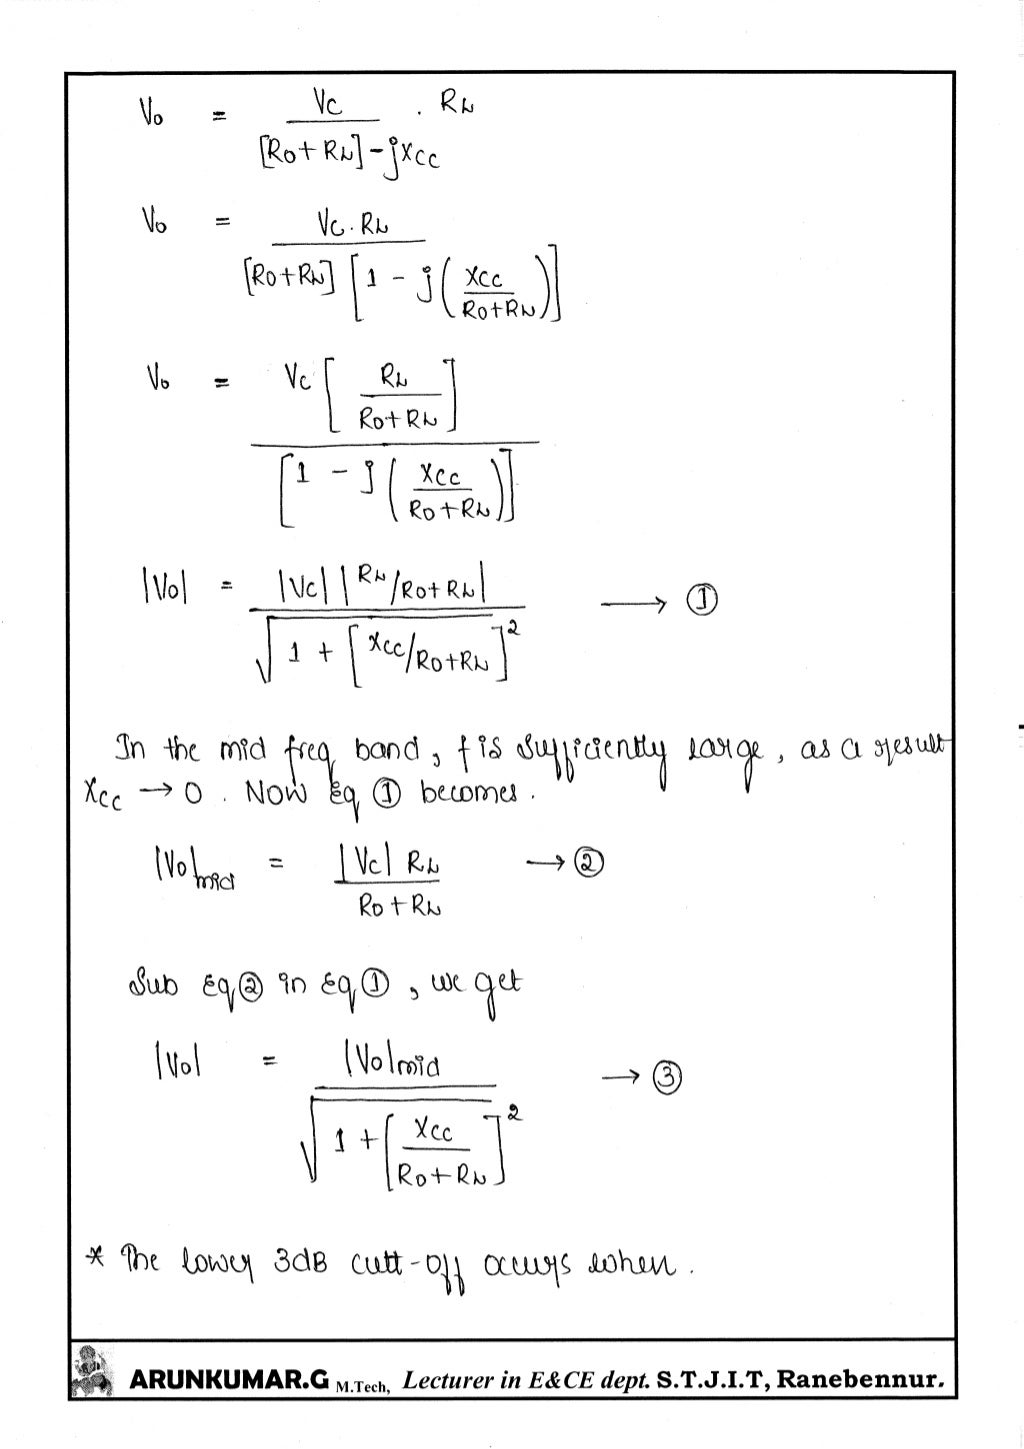 Vo = Vc / [Ro+RL]-jXcc . RL
Vo = Vc.RL / [Ro+RL] [1 - j(Xcc / Ro+RL)]
Vo = Vc [RL / Ro+RL] / [1 - j(Xcc / Ro+RL)]
|Vo| = |Vc| |RL/Ro+RL| / √1 + [Xcc/Ro+RL]² → ①
In the mid freq band, f is sufficiently large, as a result
Xcc → 0. Now Eq ① becomes.
|Vo|mid = |Vc| RL / Ro+RL → ②
Sub Eq② in Eq①, we get
|Vo| = |Vo|mid / √1 + [Xcc / Ro+RL]² → ③
* The lower 3dB cutt-off occurs when.
ARUNKUMAR.G M.Tech, Lecturer in E&CE dept. S.T.J.I.T, Ranebennur.